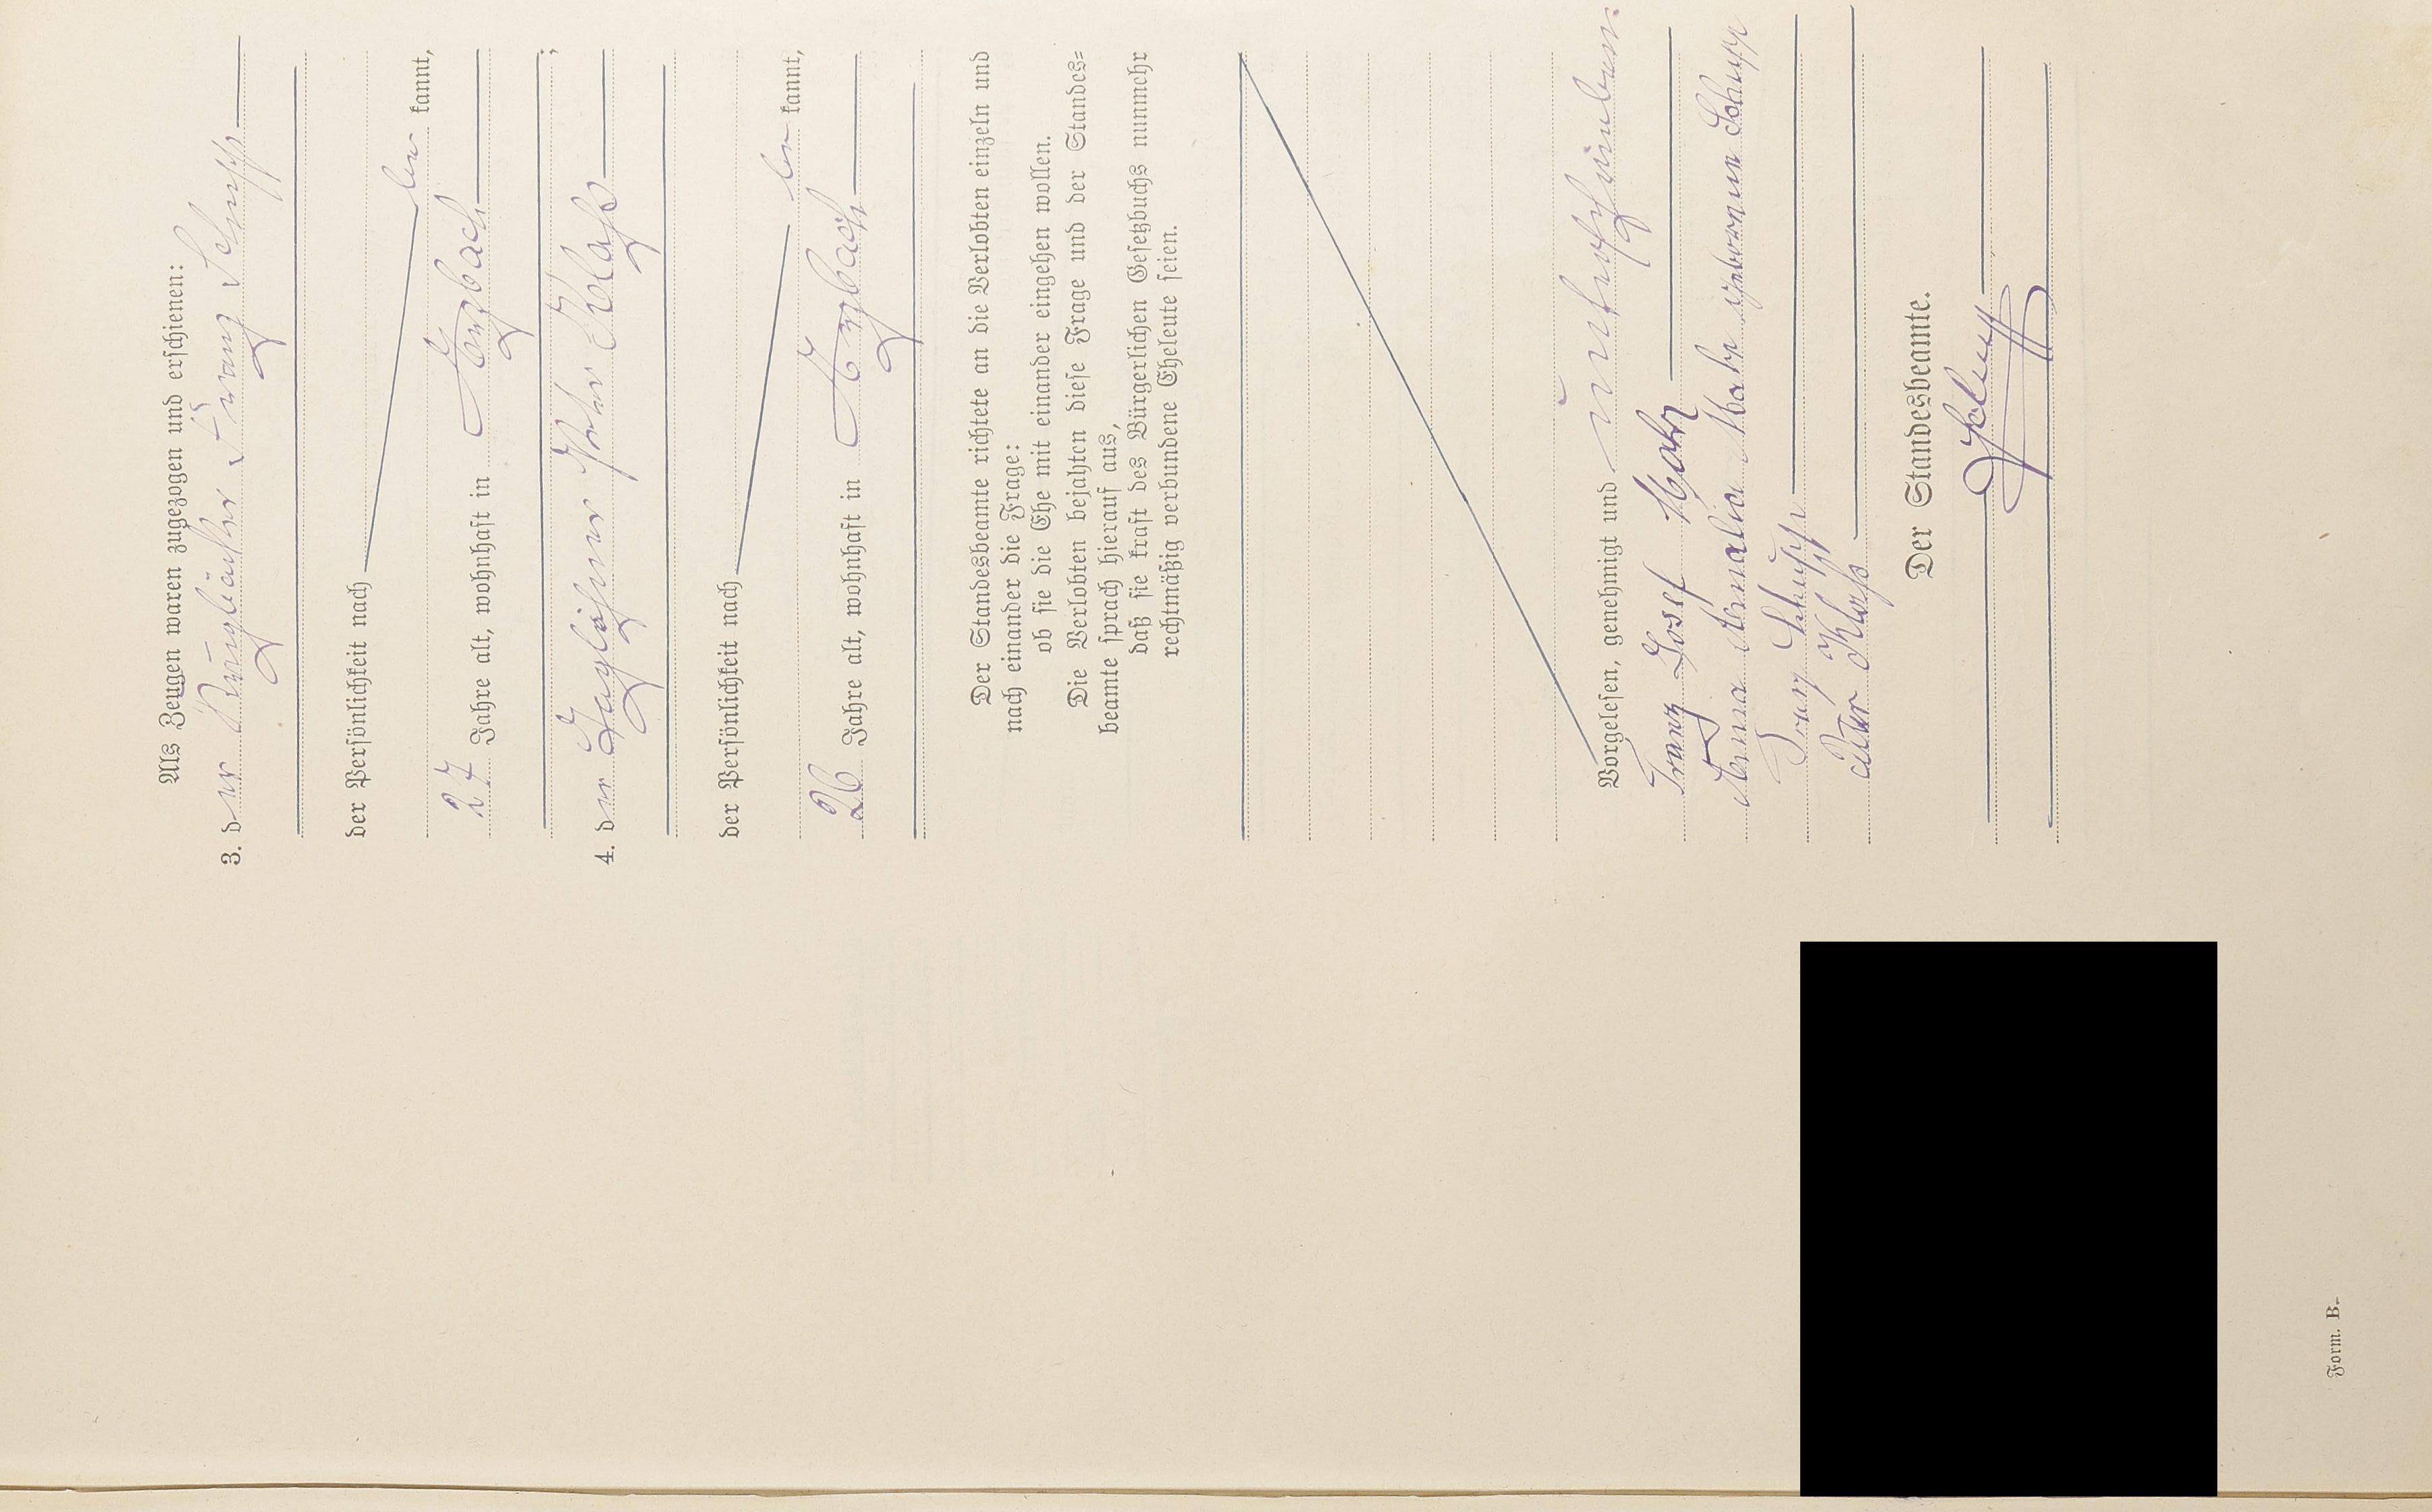 Als Zeugen waren zugezogen und erschienen:
3. der Taglöhner Franz Schupp
der Persönlichkeit nach
be kannt,
27 Jahre alt, wohnhaft in
4. der Taglöhner Peter Klaß
der Persönlichkeit nach
be kannt,
26 Jahre alt, wohnhaft in
Der Standesbeamte richtete an die Verlobten einzeln und
nach einander die Frage:
ob sie die Ehe mit einander eingehen wollen.
Die Verlobten bejahten diese Frage und der Standes=
beamte sprach hierauf aus,
daß sie kraft des Bürgerlichen Gesetzbuchs nunmehr
rechtmäßig verbundene Eheleute seien.
Vorgelesen, genehmigt und unterschrieben.
Franz Josef
Anna Amalia geborene Schupp
Franz Schupp
Peter Klaß
Der Standesbeamte.
Form. B.